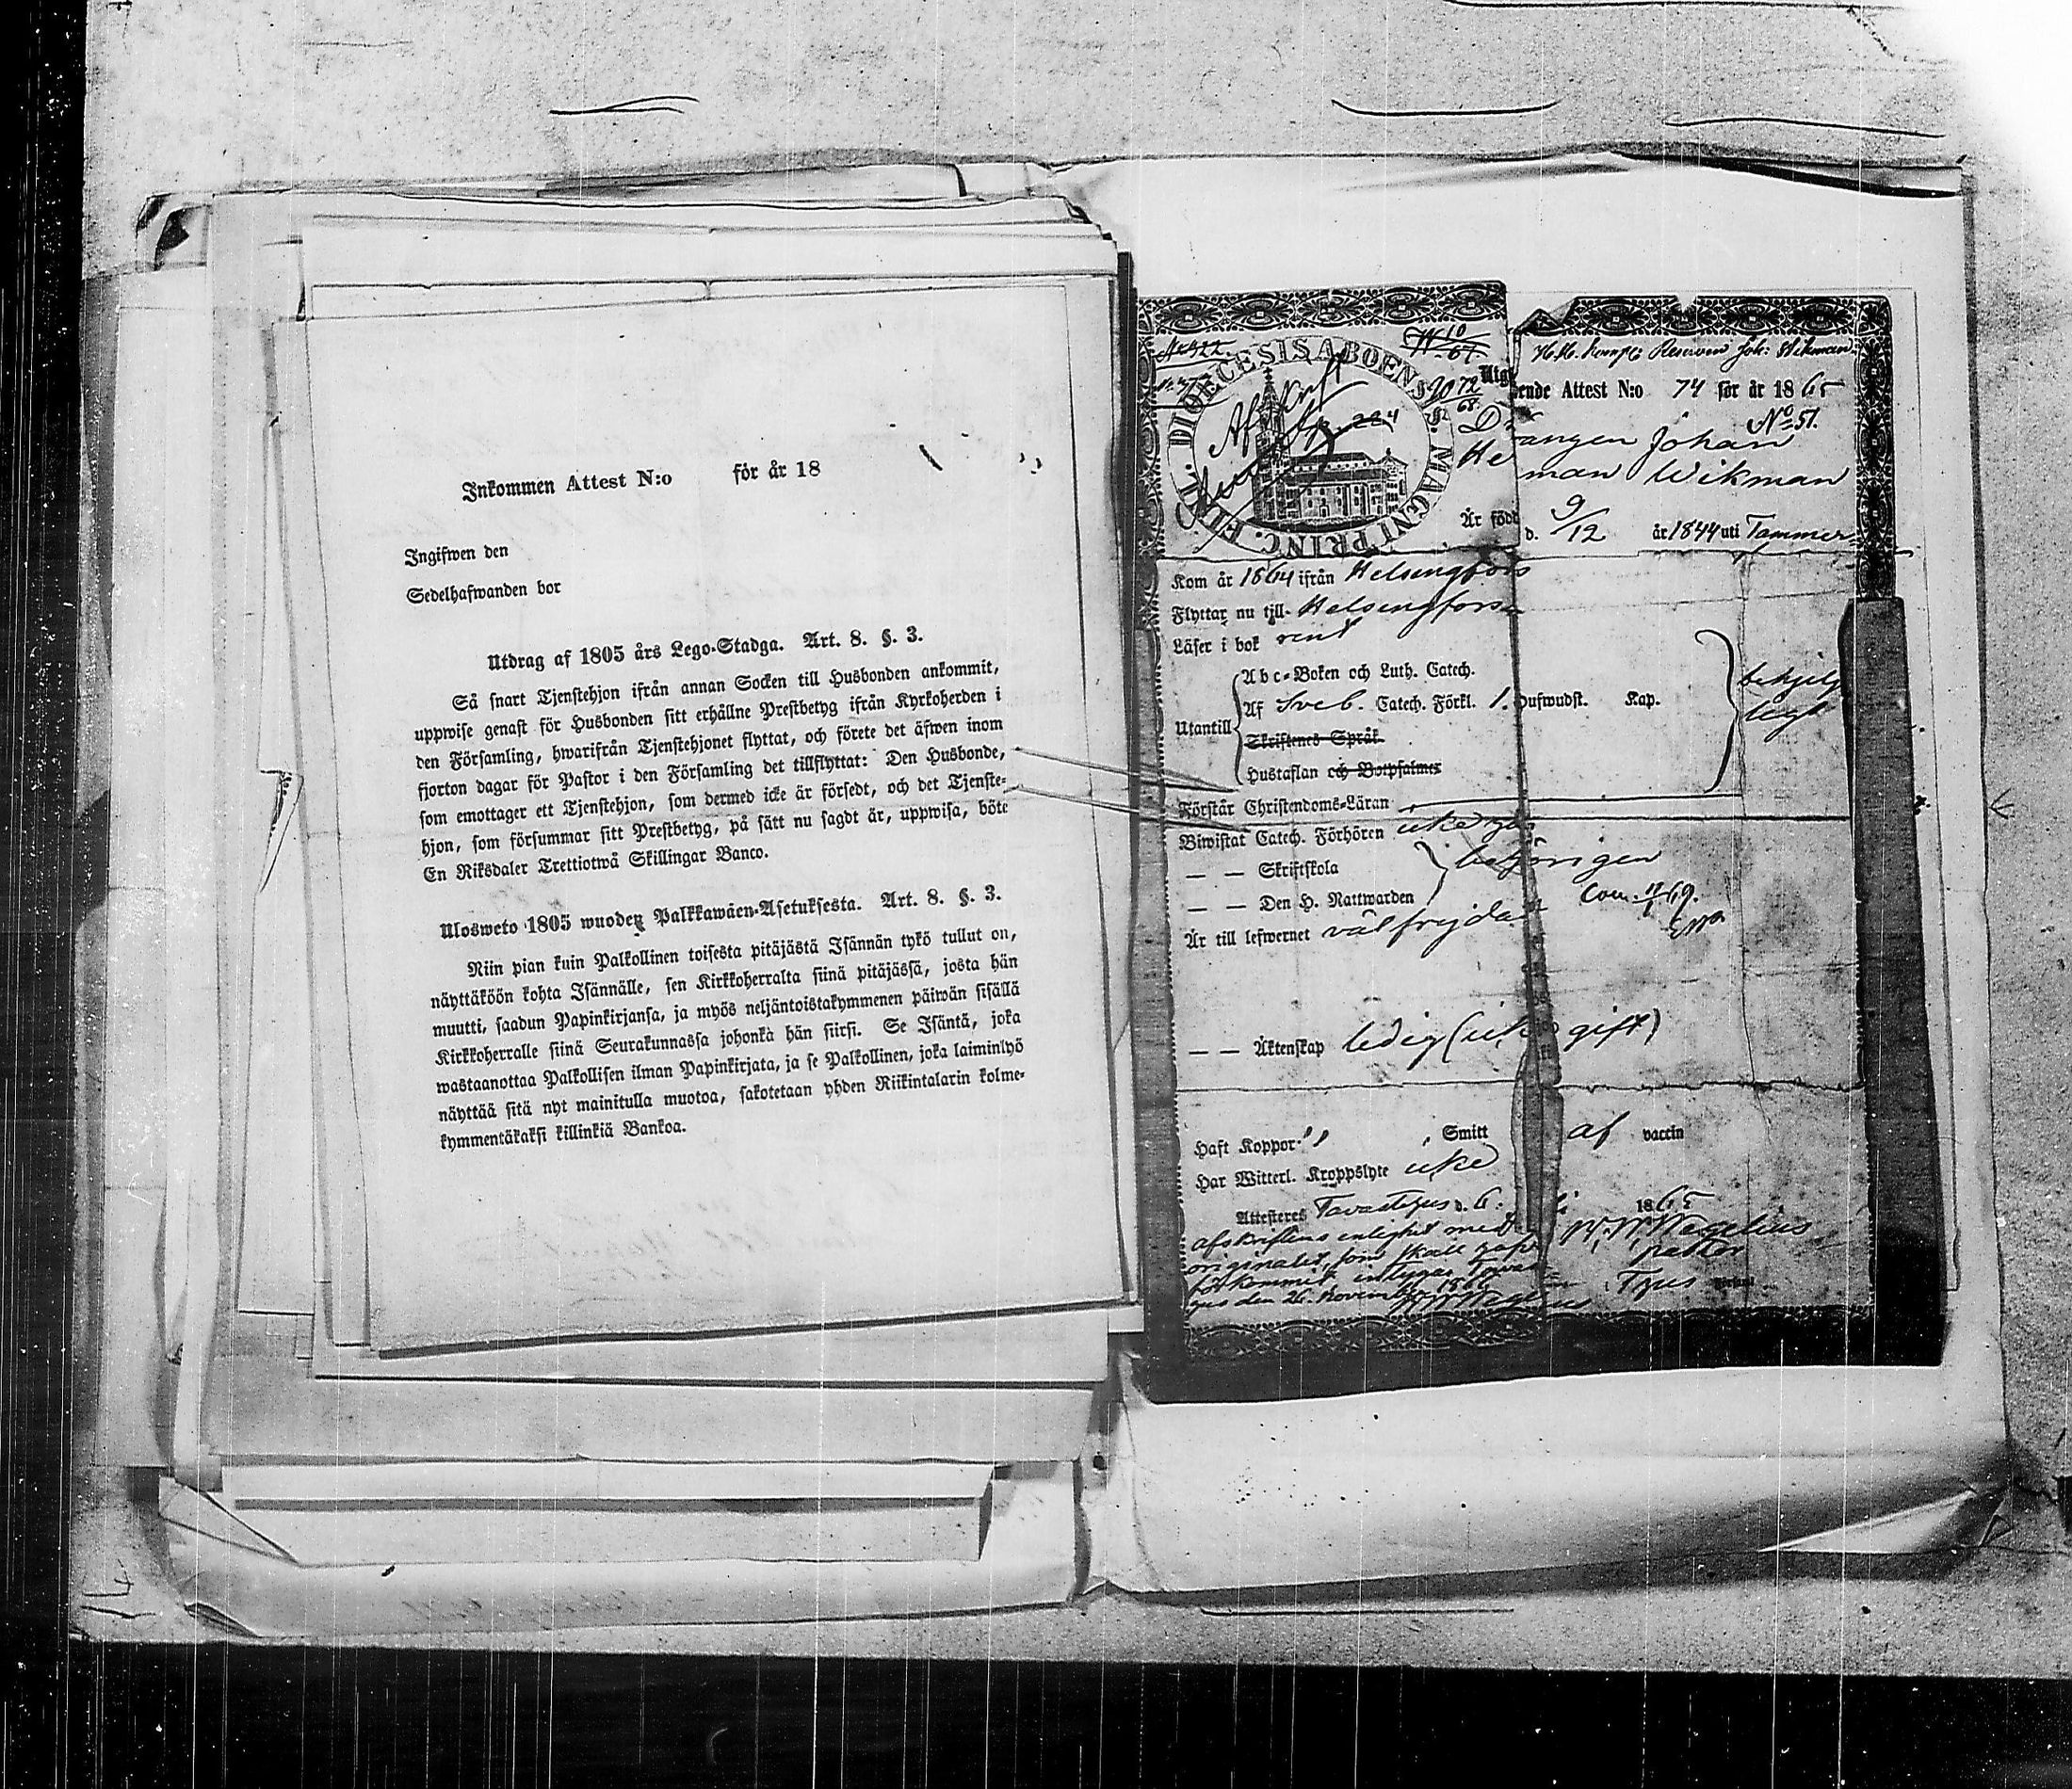 Inkommen Attest N:o för år 18
Ingifwen den
Sedelhafwanden bor
Utdrag af 1805 års Lego-Stadga. Art. 8. §. 3.
Så snart Tjenstehjon ifrån annan Socken till Husbonden ankommit,
uppwise genast för Husbonden sitt erhållne Prestbetyg ifrån Kyrkoherden i
den Församling, hwarifrån Tjenstehjonet flyttat, och förete det äfwen inom
fjorton dagar för Pastor i den Församling det tillflyttat: Den Husbonde,
som emottager ett Tjenstehjon, som dermed icke är försedt, och det Tjenste-
hjon, som försummar sitt Prestbetyg, på sätt nu sagdt är, uppwisa, böte
En Riksdaler Trettiotwå Skillingar Banco.
Ulosweto 1805 wuoden Palkkawäen-Asetuksesta. Art. 8. §. 3.
Niin pian kuin Palkollinen toisesta pitäjästä Isännän tykö tullut on,
näyttäköön kohta Isännälle, sen Kirkkoherralta siinä pitäjässä, josta hän
muutti, saadun Papinkirjansa, ja myös neljäntoistakymmenen päiwän sisällä
Kirkkoherralle siinä Seurakunnassa johonka hän siirsi. Se Isäntä, joka
wastaanottaa Palkollisen ilman Papinkirjata, ja se Palkollinen, joka laiminlyö
näyttää sitä nyt mainitulla muotoa, sakotetaan yhden Riikintalarin kolme-
kymmentäkaksi killinkiä Bankoa.
DIOECESIS ABOENSIS. MAGNI PRINC. FINL.
Joh: Wikman
Utgående Attest N:o 74 för år 1865
No 51.
Drängen Johan
Herman Wikman
Är född d. 9/12 år 1844 uti Tammer-
Kom år 1864 ifrån Helsingfors
Flyttar nu till Helsingfors
Läser i bok rent
Abc-Boken och Luth. Catech.
Utantill Af Sveb. Catech. Förkl. 1. Hufwudst. Kap. behjelp
ligt
Skriftenes Språk
Hustaflan och Botpsalmer
Förstår Christendoms-Läran
Biwistat Catech. Förhören
— — Skriftskola behörigen
— — Den H. Nattwarden
Är till lefwernet välfrejdad
— — Äktenskap ledig (icke gift)
Haft Koppor " , Smitt af vaccin
Har Witterl. Kroppslyte icke
Attesteres Tavastehus d. 6. 1865
afskriftens enlighet med W. Wegelius
originalet, som skall vara pastor
förkommit, intygar Tavaste-
hus den 26. november 1866